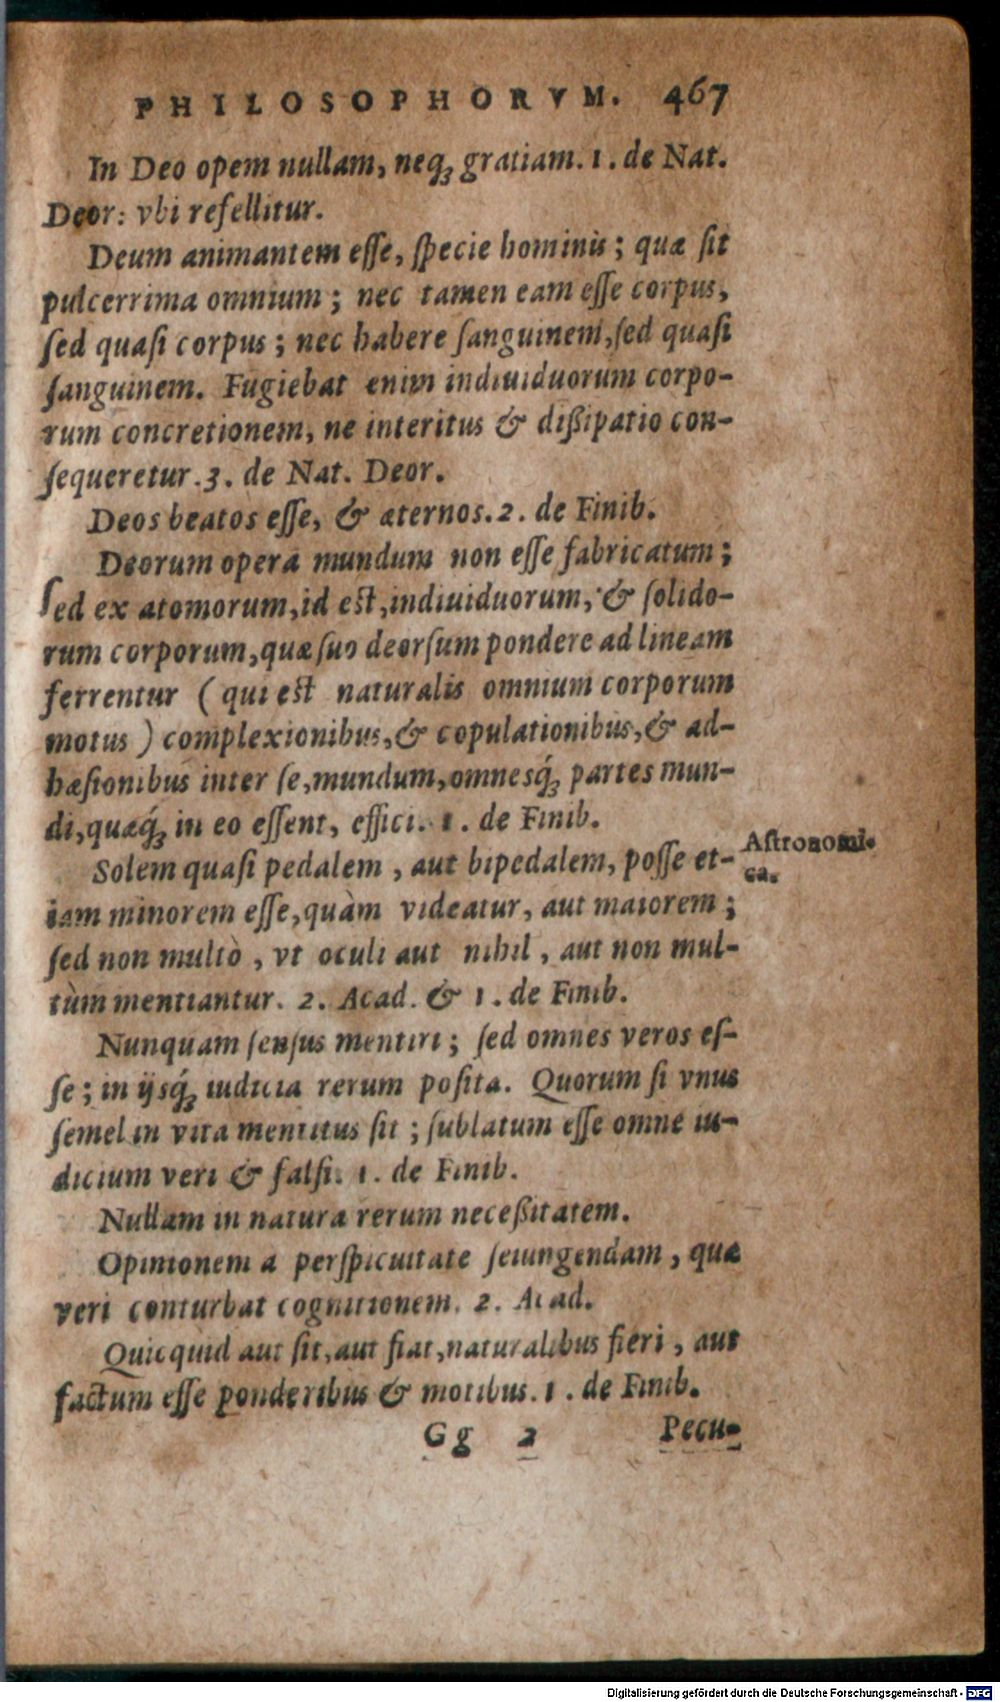 PHILOSOPHORVM. 467
In Deo opem nullam, neq́ꝫ gratiam. 1. de Nat.
Deor: vbi refellitur.
Deum animantem eſſe, ſpecie hominis; quæ ſit
pulcerrima omnium; nec tamen eam eſſe corpus,
ſed quaſi corpus; nec habere ſanguinem, ſed quaſi
ſanguinem. Fugiebat enim indiuiduorum corpo-
rum concretionem, ne interitus & dißipatio con-
ſequeretur. 3. de Nat. Deor.
Deos beatos eſſe, & æternos. 2. de Finib.
Deorum opera mundum non eſſe fabricatum;
ſed ex atomorum, id eſt, indiuiduorum, & ſolido-
rum corporum, quæ ſuo deorſum pondere ad lineam
ferrentur (qui eſt naturalis omnium corporum
motus) complexionibus, & copulationibus, & ad-
hæſionibus inter ſe, mundum, omnesq́ꝫ partes mun-
di, quæq́ꝫ in eo eſſent, effici. 1. de Finib.
Solem quaſi pedalem, aut bipedalem, poſſe et-
iam minorem eſſe, quàm videatur, aut maiorem;
ſed non multò, vt oculi aut nihil, aut non mul-
tùm mentiantur. 2. Acad. & 1. de Finib.
Astronomi-
ca.
Nunquam ſenſus mentiri; ſed omnes veros eſ-
ſe; in ijsq́ꝫ iudicia rerum poſita. Quorum ſi vnus
ſemel in vita mentitus ſit; ſublatum eſſe omne iu-
dicium veri & falſi. 1. de Finib.
Nullam in natura rerum neceßitatem.
Opinionem a perſpicuitate ſeiungendam, quæ
veri conturbat cognitionem. 2. Acad.
Quicquid aut ſit, aut fiat, naturalibus fieri, aut
factum eſſe ponderibus & motibus. 1. de Finib.
Gg 2 Pecu-
Digitalisierung gefördert durch die Deutsche Forschungsgemeinschaft - DFG